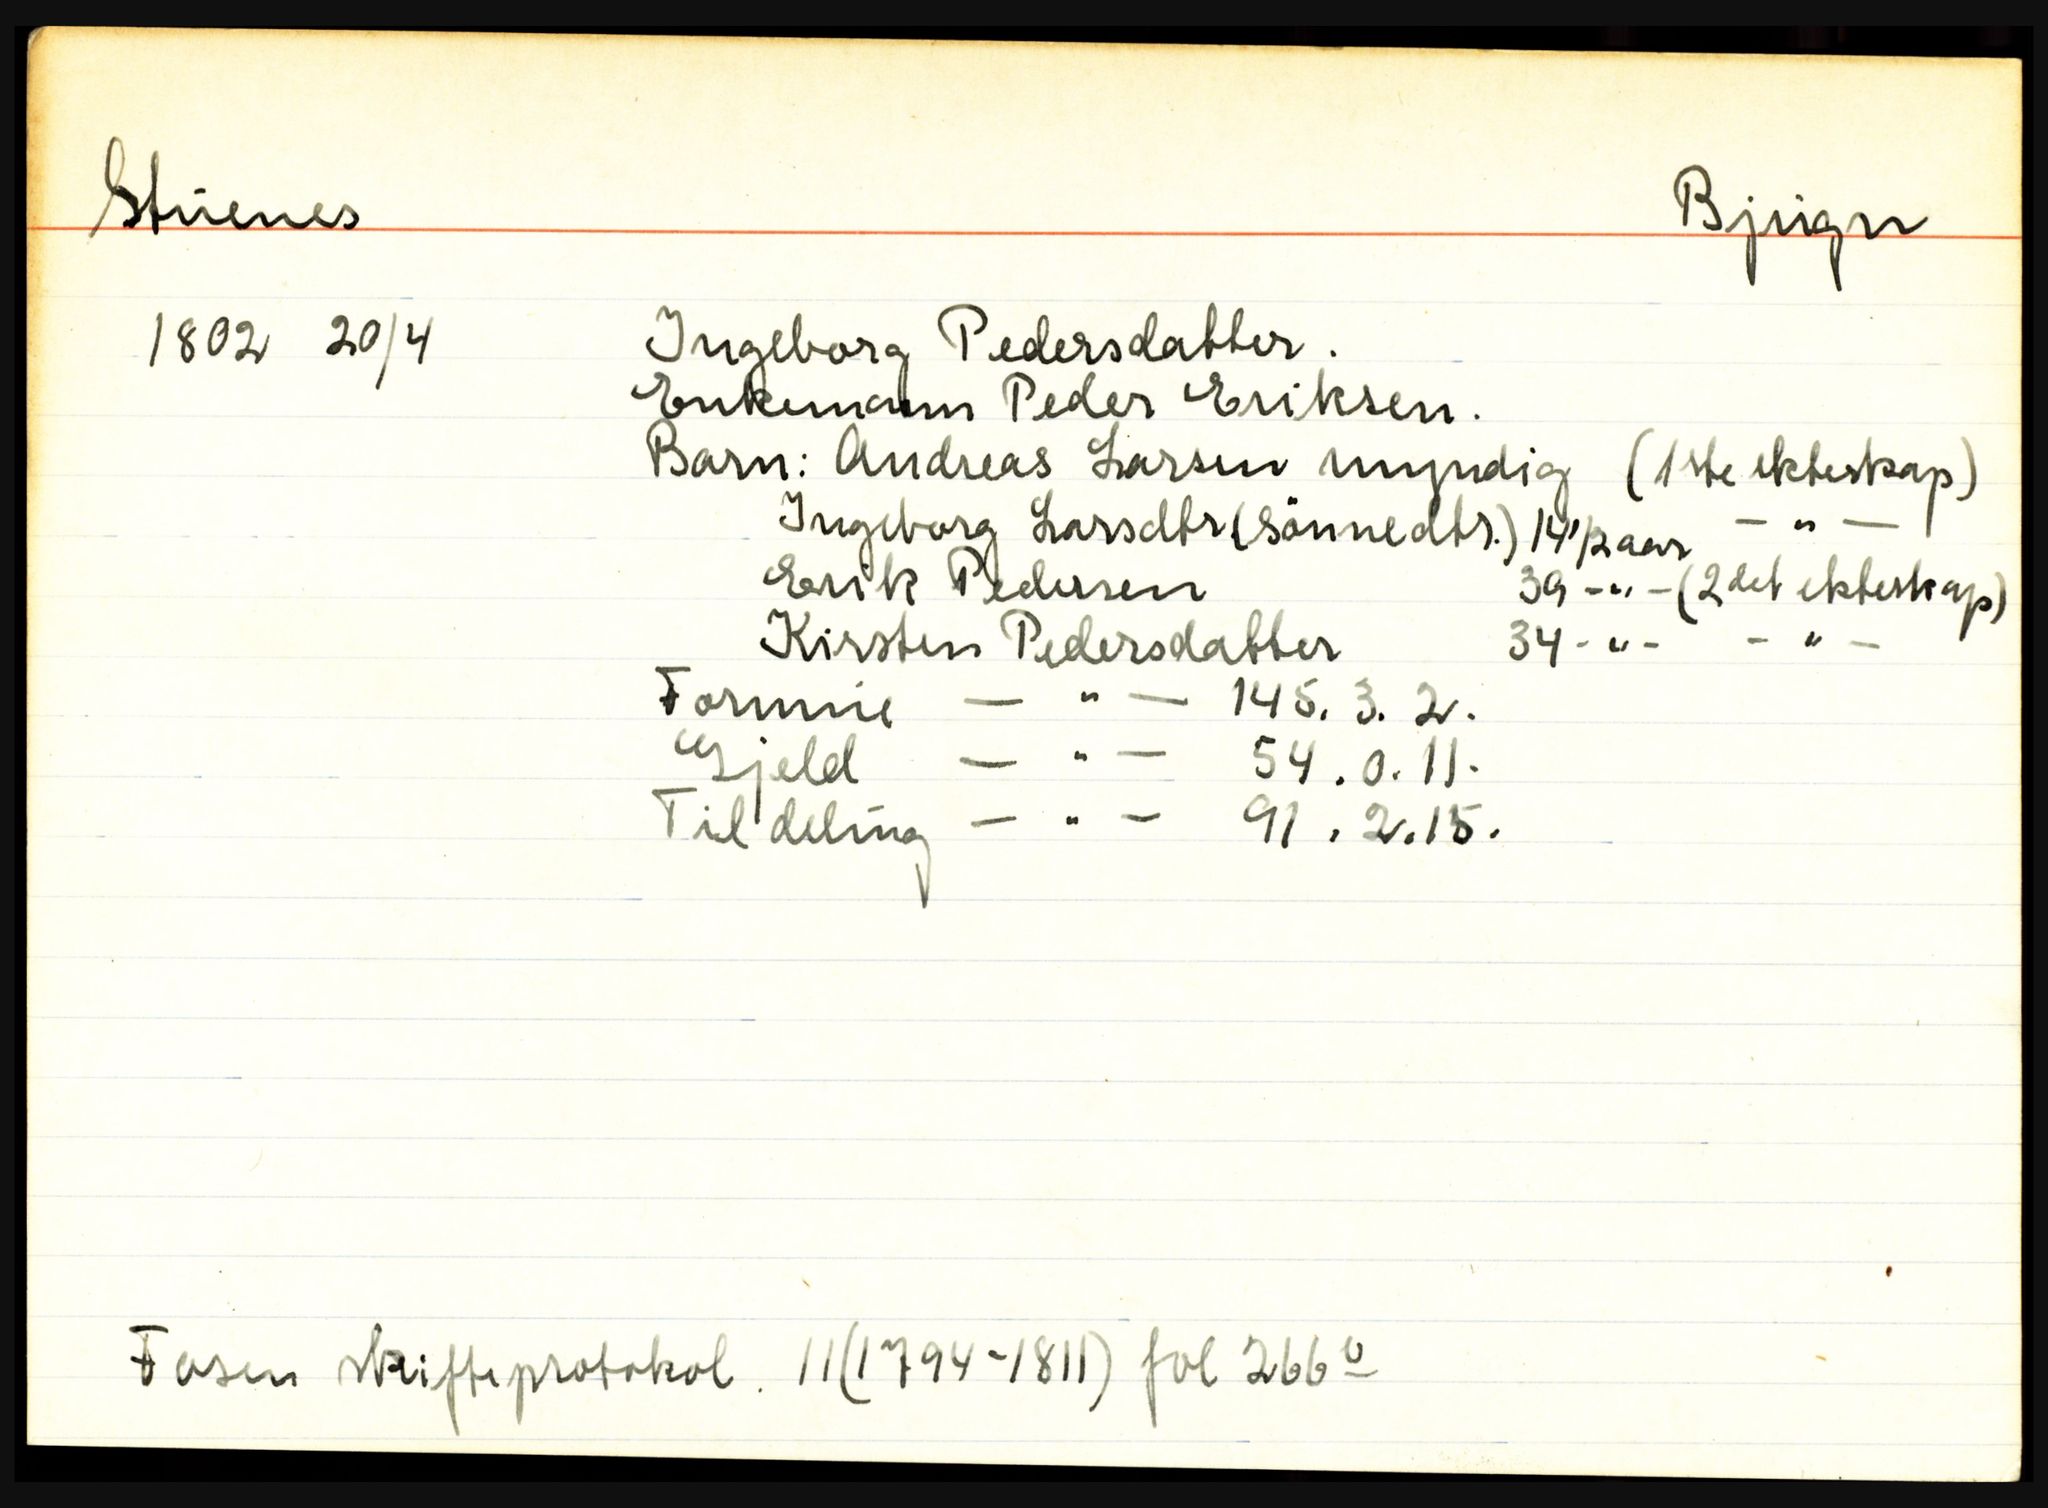 Stuenes Bjugn
1802 20/4 Ingeborg Pedersdatter.
Enkemann Peder Eriksen.
Barn: Andreas Larsen myndig (1ste ekteskap)
Ingeborg Larsdtr (Sönnedtr.) 14 1/2 aar — " —
Erik Pedersen 39 - " - (2det ekteskap)
Kirsten Pedersdatter 34 - " - - " -
Formue — " — 145. 3. 2.
Gjeld — " — 54. 0. 11.
Til deling — " — 91. 2. 15.
Fosen skifteprotokol. 11 (1794-1811) fol 266 b